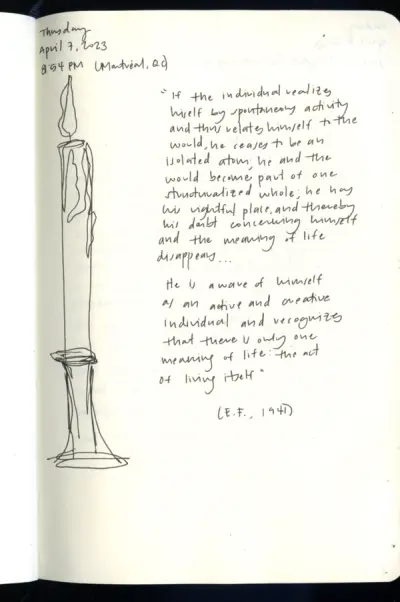 Thursday
April 7, 2023
8:54 PM (Montréal, QC)
"If the individual realizes
himself by spontaneous activity
and thus relates himself to the
world, he ceases to be an
isolated atom; he and the
world become part of one
structuralized whole; he has
his rightful place, and thereby
his doubt concerning himself
and the meaning of life
disappears...
He is aware of himself
as an active and creative
individual and recognizes
that there is only one
meaning of life: the act
of living itself"
(E.F., 1941)